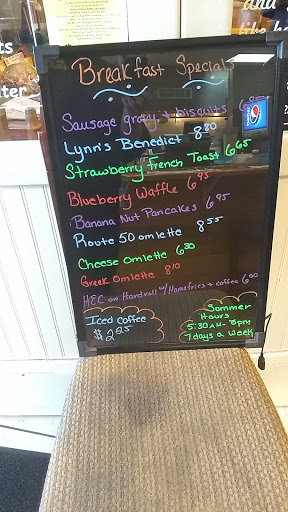 and
ts
ater
Breakfast Specials
Sausage gravy & biscuits 6.95
Lynn's Benedict 8.80
Strawberry French Toast 6.65
Blueberry Waffle 6.95
Banana Nut Pancakes 6.95
Route 50 omlette 8.55
Cheese Omlette 6.30
Greek Omlette 8.10
HEC on Hardroll w/ Homefries + coffee 6.00
Iced coffee
$2.25
Summer
Hours
5:30AM-8pm
7days a week